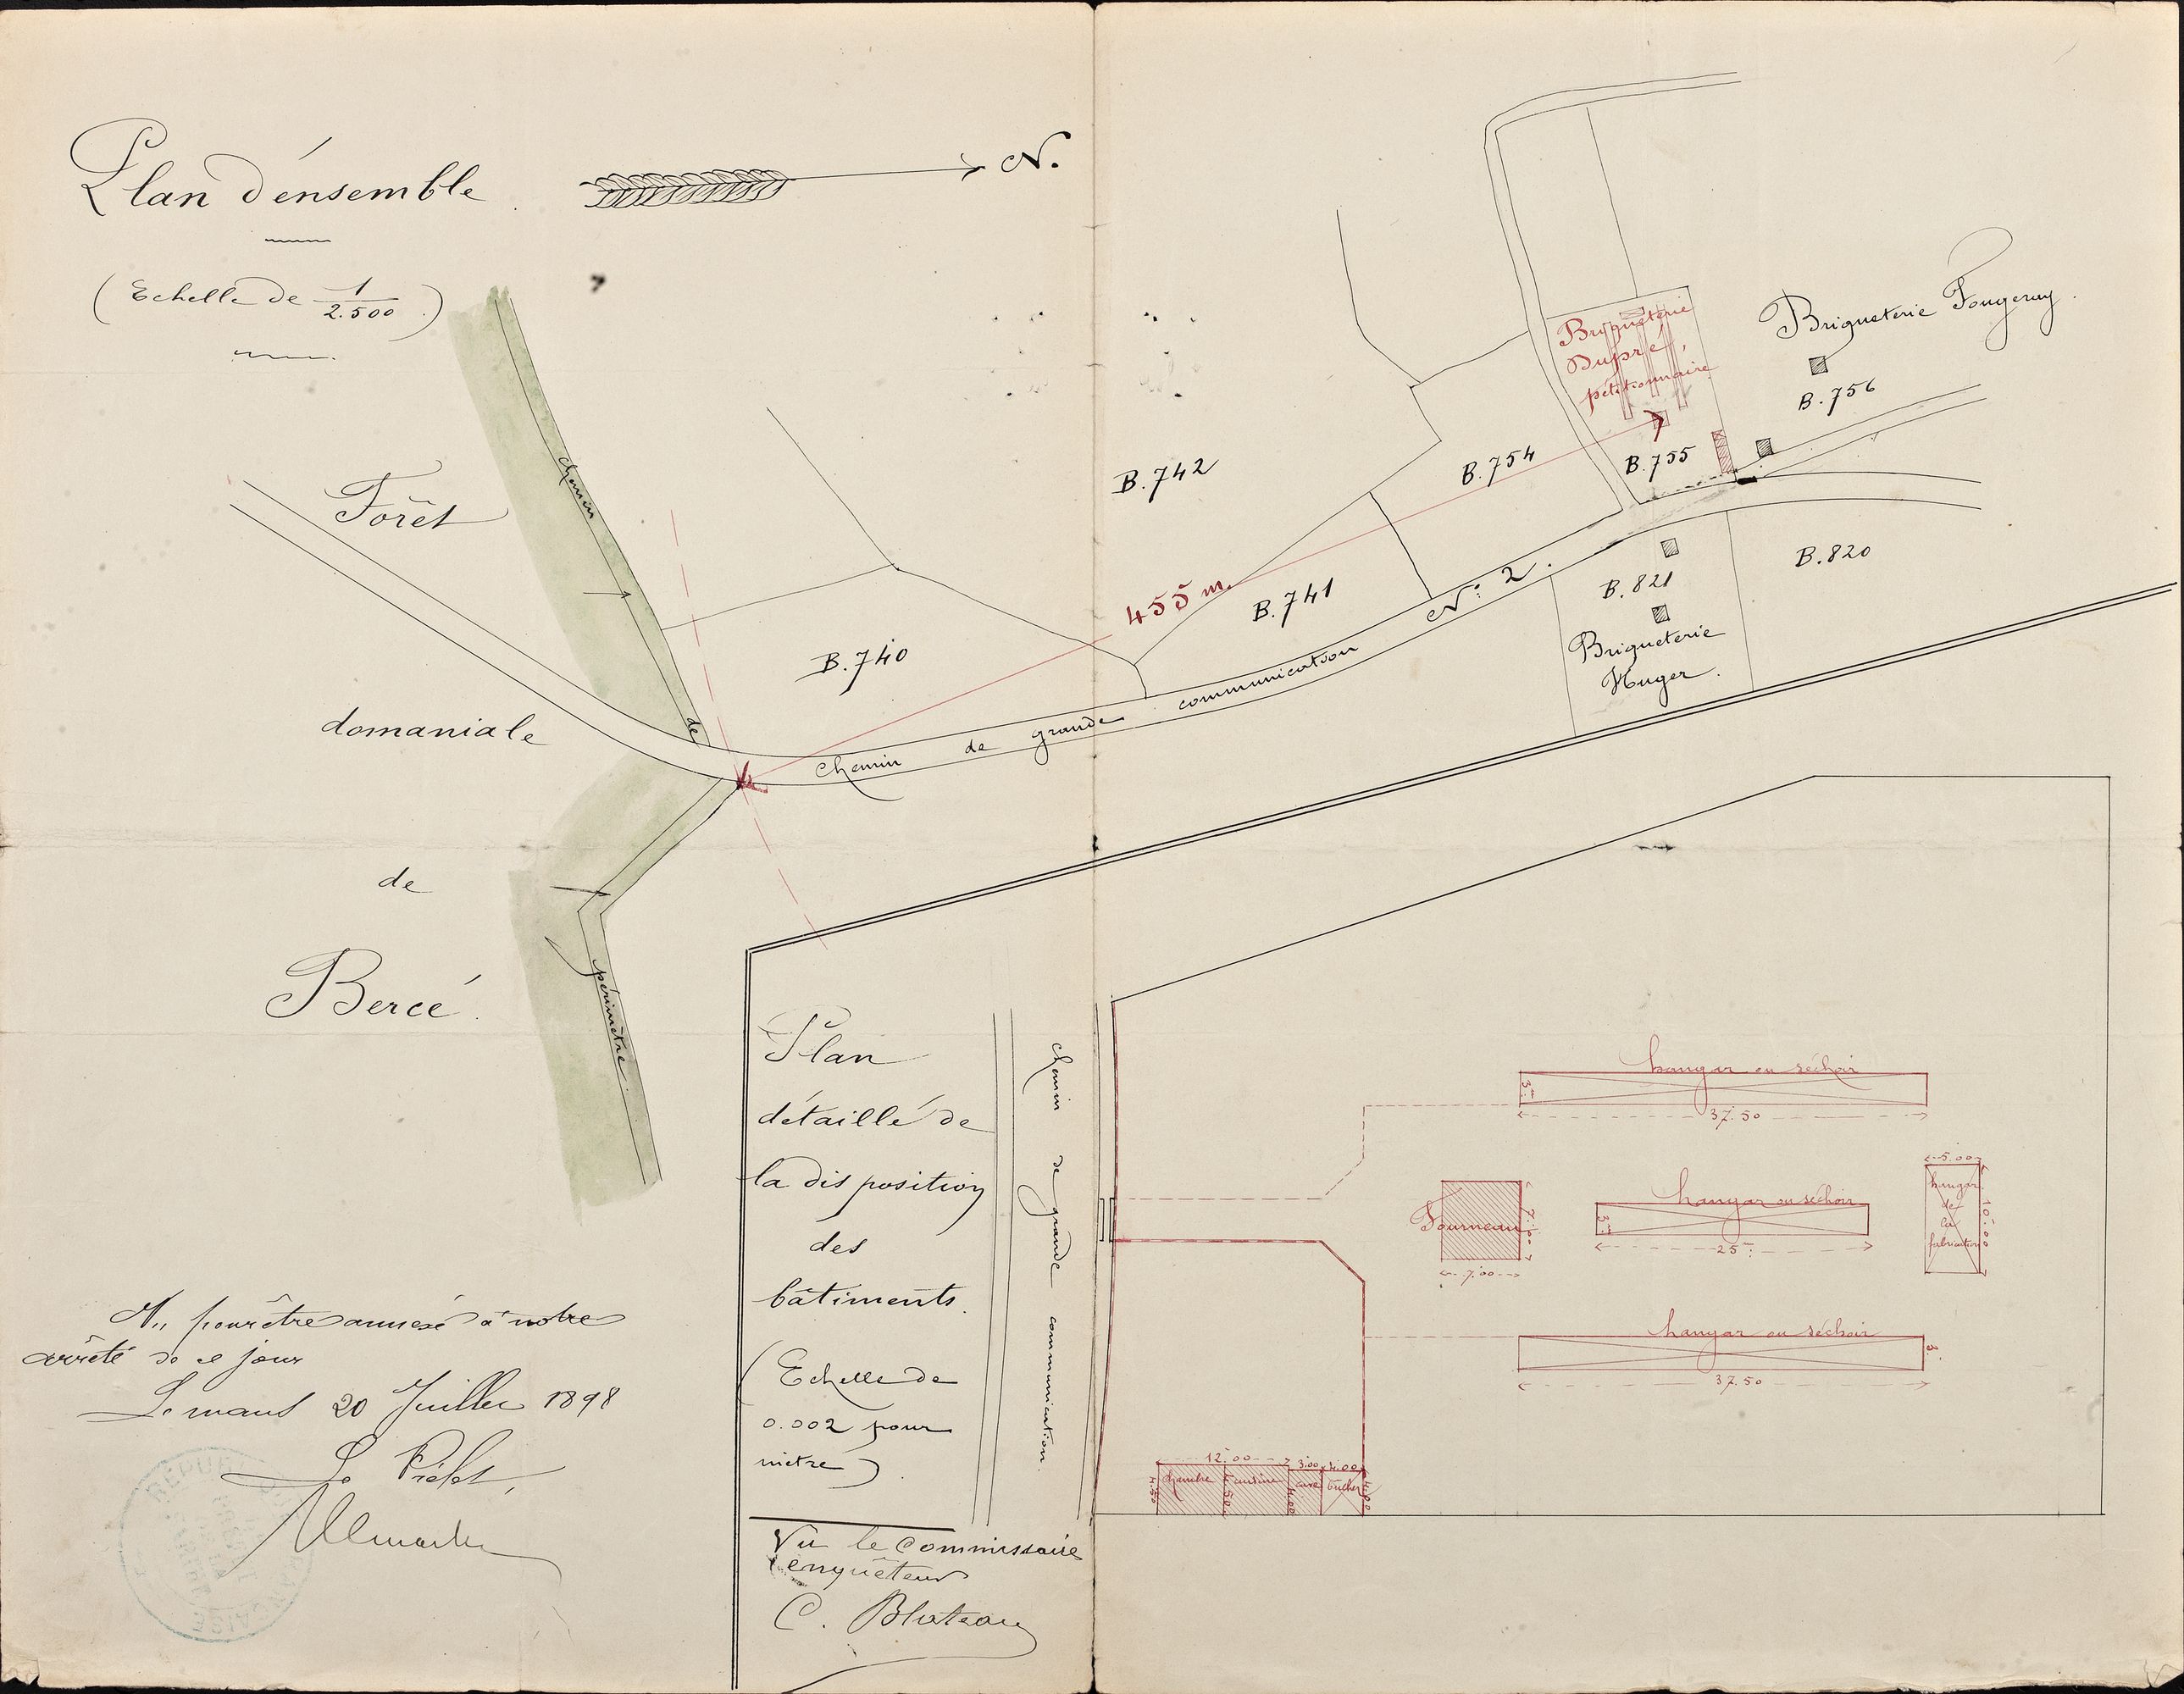 Plan d'énsemble
N.
(Echelle de 1/2.500.)
Forêt
domaniale
de
Bercé.
chemin
de
périmètre.
B.740
B.742
B.741
B.754
B.755
B.756
B.821
B.820
455 m.
Briqueterie
Dupré,
petitionnaire
Briqueterie Fougeray.
Briqueterie
Huger.
Chemin de grande communication N.º 2.
Plan
détaillé de
la disposition
des
bâtiments.
(Echelle de
0.002 pour
mètre).
chemin de grande communication
hangar ou séchoir
3.m
37.50
Fourneau
7.00
7.00
hangar ou séchoir
3.m
25m
5.00
hangar
de
la
fabrication
10.00
hangar ou séchoir
3.
37.50
12.00
3.00
4.00
chambre
cuisine
cave
bucher
4.50
4.50
4.00
4.00
Vu pour être annexé à notre
arrêté de ce jour
Le mans 20 Juillet 1898
Le Préfet,
Vu le Commissaire
enquêteur
C. Blateau
RÉPUBLIQUE FRANÇAISE